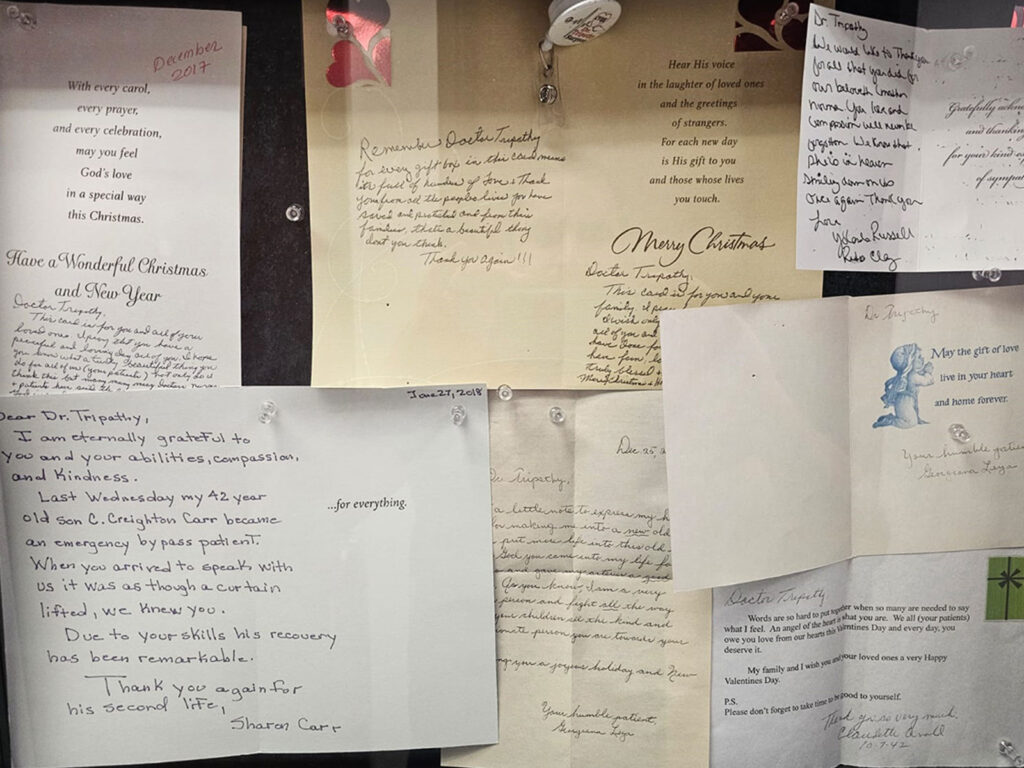 December
2017
With every carol,
every prayer,
and every celebration,
may you feel
God's love
in a special way
this Christmas.
Have a Wonderful Christmas
and New Year
Doctor Tripathy,
This card is for you and all of your
loved ones. I pray that you have a
peaceful and loving day all of you. I hope
you know what a truly beautiful thing you
do for all of us (your patients) not only do I
think this but many many many Doctors, nurses
+ patients
Remember Doctor Tripathy
for every gift box in this card means
its full of hundreds of Love & Thank
you from all the peoples lives you have
saved and protected and from their
families, thats a beautiful thing
dont you think.
Thank you again!!!
Hear His voice
in the laughter of loved ones
and the greetings
of strangers.
For each new day
is His gift to you
and those whose lives
you touch.
Merry Christmas
Doctor Tripathy,
This card is for you and your
family. I
wish only
all of you and
have done for
truly blessed
Merry Christmas
Dr. Tripathy
We would like to Thank you
for all that you did for
our beloved
Norma. Your love and
Compassion will never be
forgotten. We know that
she is in heaven
smiling down on us
Once again Thank you
Love
Russell
Clay
Gratefully
and thanking
for your kind
of sympat
Dear Dr. Tripathy,
June 27, 2018
I am eternally grateful to
you and your abilities, compassion,
and kindness.
Last Wednesday my 42 year
old son C. Creighton Carr became
an emergency bypass patient.
When you arrived to speak with
us it was as though a curtain
lifted, we knew you.
Due to your skills his recovery
has been remarkable.
Thank you again for
his second life,
Sharon Carr
...for everything.
Dec 25, 2
Dr Tripathy,
a little note to express my h
for making me into a new old
put more life into this old
God you came into my life
and gave my arteries a good
As you know, I am a very
person and fight all the way
your children all the kind and
person you are towards your
ng you a joyous holiday and New
Your humble patient,
Georgiana
Dr Tripathy
May the gift of love
live in your heart
and home forever.
Your humble patien
Georgiana
Doctor Tripathy,
Words are so hard to put together when so many are needed to say
what I feel. An angel of the heart is what you are. We all (your patients)
owe you love from our hearts this Valentines Day and every day, you
deserve it.
My family and I wish you and your loved ones a very Happy
Valentines Day.
P.S.
Please don't forget to take time to be good to yourself.
Thank you so very much,
Claudette
10-7-42